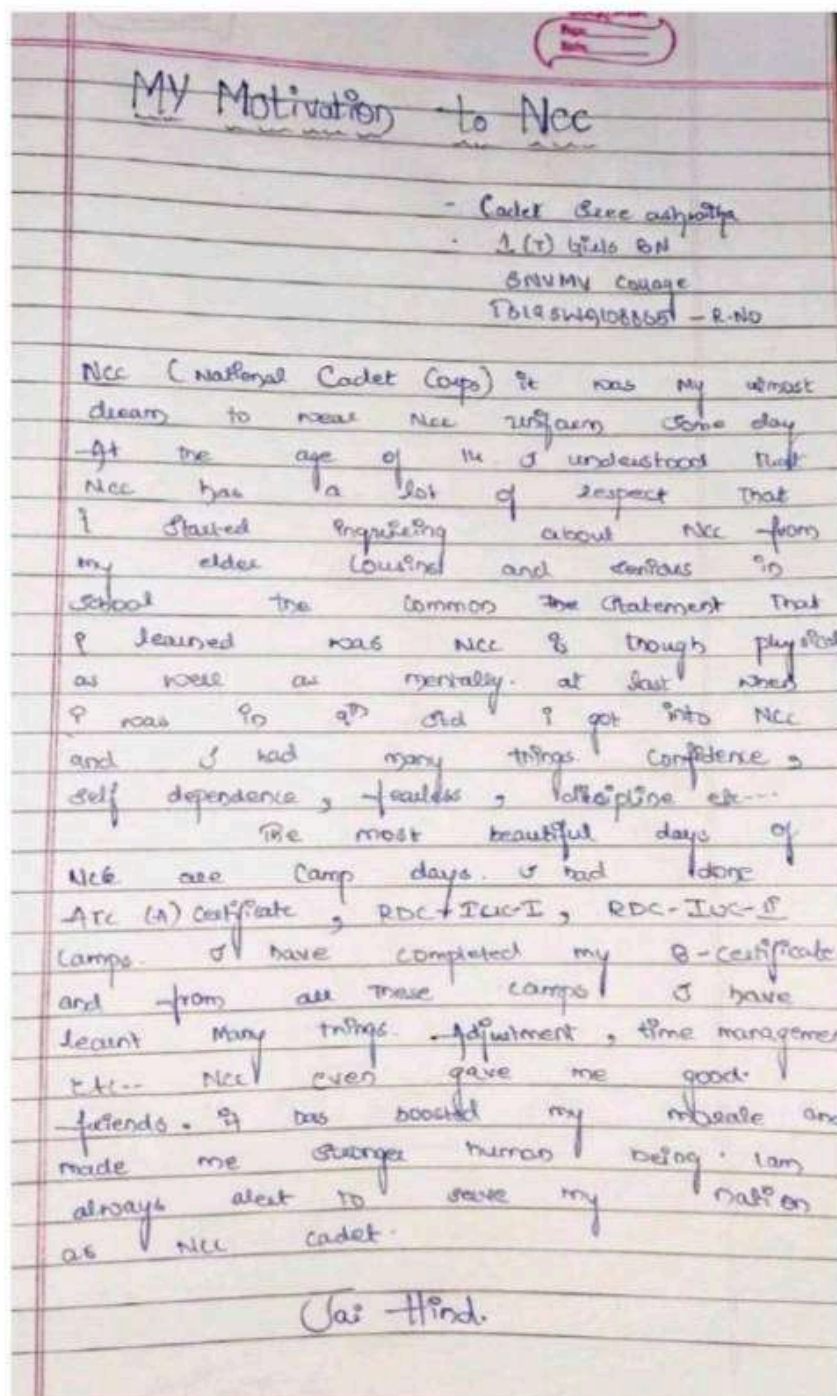 Page
Date
MY Motivation to Ncc
- Cadet Sree ashwitha
- 1 (T) Girls BN
SNVMV Collage
- R.NO
Ncc (National Cadet Corps) it was my utmost
dream to wear Ncc uniform some day
At the age of 14 I understood that
Ncc has a lot of respect that
i started inquiring about Ncc from
my elder cousins and seniors in
school the common the statement that
i learned was Ncc is though physical
as well as mentally. at last when
i was in 9th std i got into Ncc
and I had many things. Confidence,
self dependence, fearless, discipline etc...
The most beautiful days of
Ncc are camp days. I had done
ATC (A) Certificate, RDC-IUC-I, RDC-IUC-II
camps. I have completed my B-certificate
and from all these camps I have
learnt many things. Adjustment, time managemen
Etc.. Ncc even gave me good.
friends. it has boosted my morale and
made me stronger human being. iam
always alert to serve my nation
as Ncc cadet.
Jai Hind.